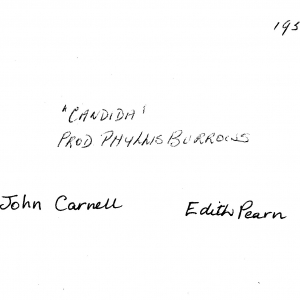 193
"CANDIDA"
PROD PHYLLIS BURROWS
John Carnell Edith Pearn